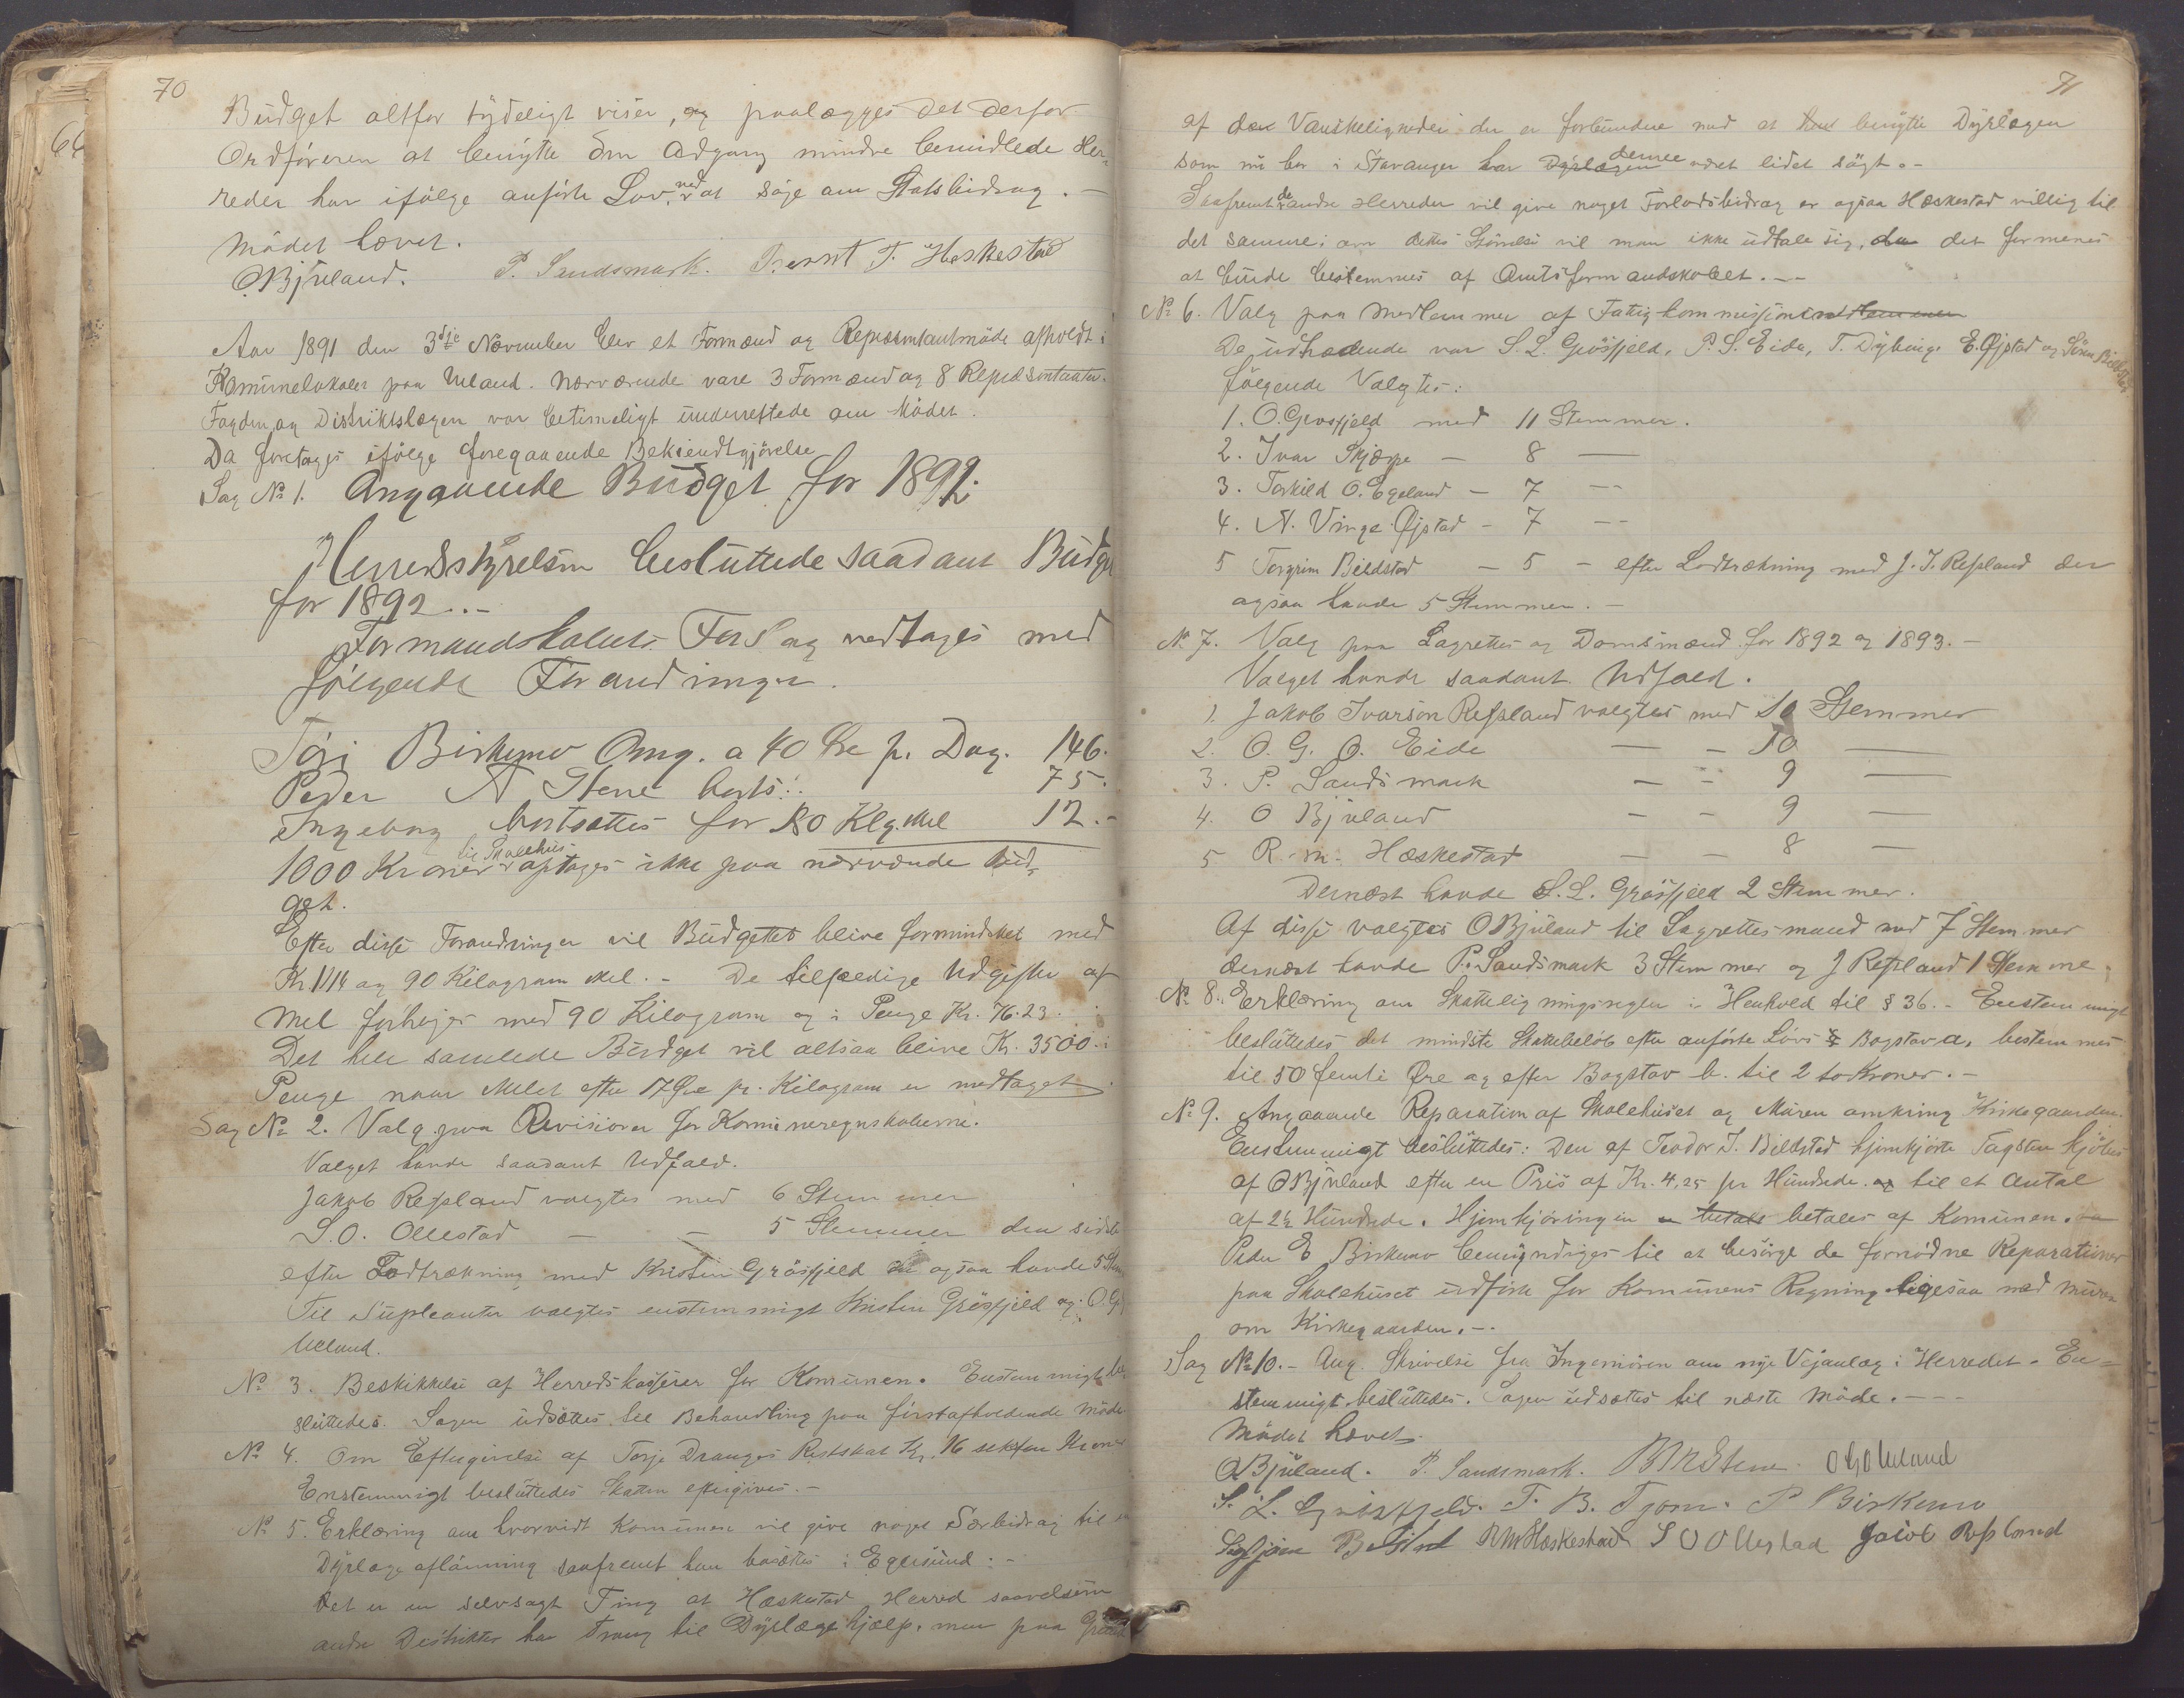 70
Budget altfor tydeligt viser, og paalægges det derfor
Ordføreren at benytte den Adgang mindre bemidlede Her-
reder har ifølge anførte Lov, ved at søge om Statsbidrag. -
Mødet hævet.
OBjuland. P. Sandsmark. Berent T. Heskestad
Aar 1891 den 3dje November blev et Formænd og Repræsentantmøde afholdt i
Kommunelokalet paa Ueland. Nærværende vare 3 Formænd og 8 Repræsentanter.
Fogden og Distriktslægen var betimeligt underrettede om Mødet.
Da foretages ifølge foregaaende Bekjendtgjørelse
Sag No 1. Angaaende Budget for 1892.
Herredsstyrelsen besluttede saadant Budget
for 1892..-
Formandskabets Forslag vedtages med
følgende Forandringer.
Birkemo Omg. a 40 Øre p. Dag. 146.
Peder A Stene borts: 75.
Ingeborg bortsættes for 80 Klg. Mel 12.-
1000 Kroner til Skolehus optages ikke paa nærværende Bud-
get.
Efter disse Forandringer vil Budgettet blive formindsket med
Kr. 1114 og 90 Kilogram Mel. - De tilfældige Udgifter af
Mel forhøjes med 90 Kilogram og i Penge Kr. 76.23.
Det hele samlede Budget vil altsaa blive Kr. 3500. i
Penge naar Melet efter 17 Øre pr. Kilogram er medtaget.
Sag No 2. Valg paa Revisiorer for Kommuneregnskaberne.
Valget havde saadant Udfald.
Jakob Refsland valgtes med 6 Stemmer
S.O. Ollestad - - 5 Stemmer den sidste
efter Lodtrækning med Kristen Grøsfjeld der ogsaa havde 5 Stem
Til Supleanter valgtes enstemmigt Kristen Grøsfjeld og O.G.
Ueland.
No 3. Beskikkelse af Herredskasserer for Kommunen. Enstemmigt be
sluttedes. Sagen udsættes til Behandling paa førstafholdende Møde
No 4. Om Eftergivelse af Torje Dranges Restskat Kr. 16 seksten Kroner
Enstemmigt besluttedes Skatten eftergives. -
No 5. Erklæring om hvorvidt Kommunen vil give noget Særbidrag til
Dyrlægeaflønning saafremt han bosættes i Egersund. -
Det er en selvsagt Ting at Hæskestad Herred saavelsom
andre Distrikter har Trang til Dyrlægehjælp, men paa Grund
71
af de Vanskeligheder der er forbundne med at benytte Dyrlægen
som nu bor i Stavanger har denne været lidet søgt. -
Saafremt de andre Herreder vil give noget Forlodsbidrag er ogsaa Hæskestad villig til
det samme; om dettes Størrelse vil man ikke udtale sig, da det formenes
at burde bestemmes af Amtsformandskabet. --
No 6. Valg paa Medlemmer af Fattigkommissionen
De udtrædende var S. L. Grøsfjeld, P. S. Eide, T. Dybing, E. Øjstad og Søren Bilstad
følgende Valgtes:
1. O. Grosfjeld med 11 Stemmer.
2. Ivar Skjærpe - 8 —
3. Torkild O. Egeland - 7 —
4. N. Vinge Øjstad - 7 —
5 Torgrim Bildstad - 5 - efter Lodtrækning med J. I. Refsland der
ogsaa havde 5 Stemmer. -
No 7. Valg paa Lagrettes og Domsmænd for 1892 og 1893. -
Valget havde saadant Udfald.
1. Jakob Ivarson Refsland valgtes med 10 Stemmer
2. O. G. O. Eide — - 10 —
3. P. Sandsmark — - 9 —
4. O Bjuland - - 9 —
5 R. M. Hæskestad — 8 —
Dernæst havde S. L. Grøsfjeld 2 Stemmer.
Af disse valgtes OBjuland til Lagrettesmand med 7 Stemmer
dernæst havde P. Sandsmark 3 Stemmer og J Refsland 1 Stemme.
No 8. Erklæring om Skatteligningsregler i Henhold til § 36. - Enstemmigt
besluttedes det mindste Skattebeløb efter anførte Lovs § Bogstav a, bestemmes
til 50 femti Øre og efter Bogstav b. til 2 to Kroner. -
No 9. Angaaende Reparation af Skolehuset og Muren omkring Kirkegaarden.
Enstemmigt besluttedes: Den af Teodor T. Bildstad hjemkjørte Tagsten kjøbes
af OBjuland efter en Pris af Kr. 4,25 pr Hundrede og til et Antal
af 2½ Hundrede. Hjemkjøringen betales af Kommunen.
Peder E Birkemo bemyndiges til at besørge de fornødne Reparationer
paa Skolehuset udført for Kommunens Regning ligesaa med Muren
om Kirkegaarden. -
Sag No 10. - Ang. Skrivelse fra Ingeniøren om nye Vejanlæg i Herredet. En-
stemmigt besluttedes. Sagen udsættes til næste Møde. ---
Mødet hævet.
OBjuland. P. Sandsmark. OGOUeland
S. L. Grøsfjeld. T. B. Tjørn. P Birkemo
RMHæskestad S O Ollestad Jacob Refsland